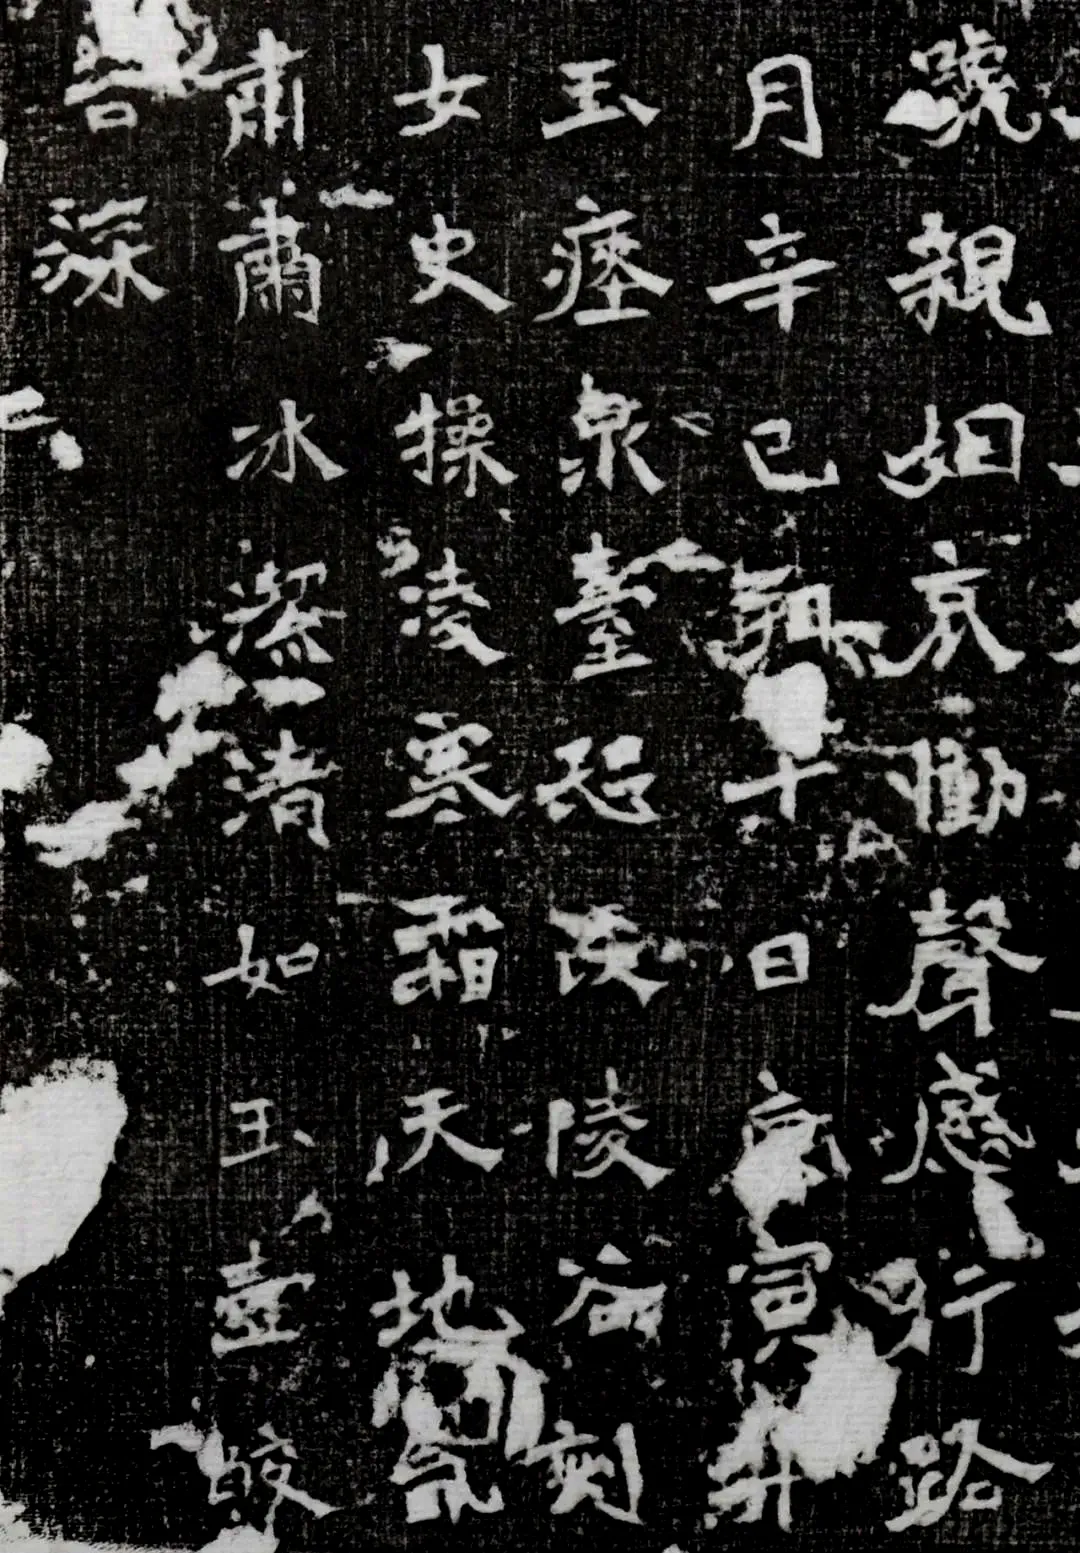 號親姻哀慟聲感行路
月辛巳朔十日庚寅
玉瘞泉臺恐陵谷刻
女史操凌寒霜天地氛
肅肅冰潔清如玉壺皎
深